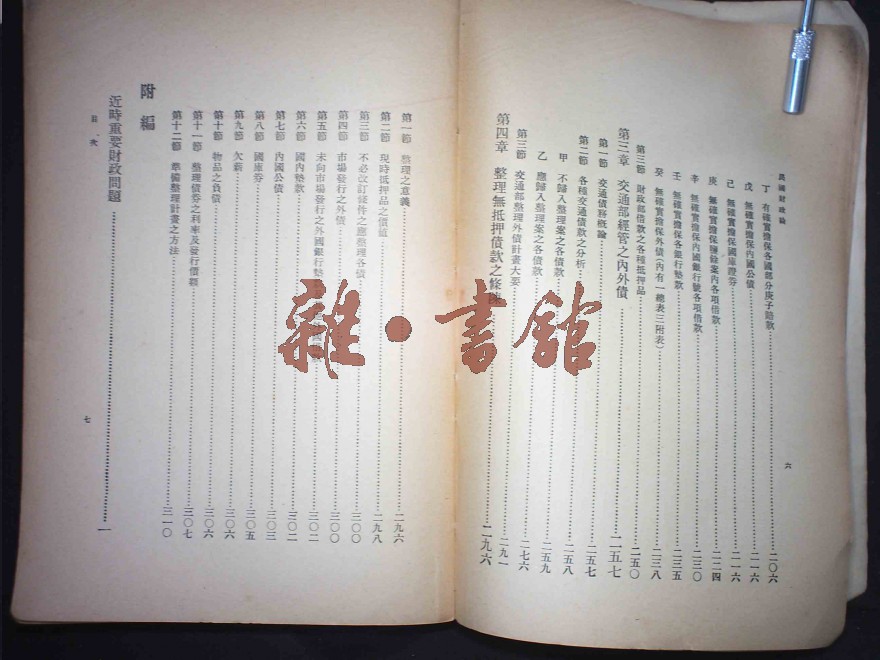 民國財政論
丁 有確實擔保各國部分庚子賠款 二〇六
戊 無確實擔保內國公債 二一六
己 無確實擔保國庫證券 二一六
庚 無確實擔保鹽餘案內各項借款 二二四
辛 無確實擔保內國銀行號各項借款 二三〇
壬 無確實擔保各銀行墊款 二三五
癸 無確實擔保外債(內有一總表三附表) 二三八
第三節 財政部借款之各種抵押品 二五〇
第三章 交通部經管之內外債 二五七
第一節 交通債務概論 二五七
第二節 各種交通債款之分析
甲 不歸入整理案之各債款 二五八
乙 應歸入整理案之各債款 二五九
第三節 交通部整理外債計畫大要 二七六
第四章 整理無抵押債款之條陳 二九六
六
第一節 整理之意義 二九六
第二節 現時抵押品之價值 二九八
第三節 不必改訂條件之應整理各債 三〇〇
第四節 市場發行之外債 三〇〇
第五節 未向市場發行之外國銀行墊款 三〇二
第六節 國內墊款 三〇二
第七節 內國公債 三〇三
第八節 國庫券 三〇五
第九節 欠薪 三〇六
第十節 物品之負債 三〇六
第十一節 整理債券之利率及發行價額 三〇七
第十二節 準備整理計畫之方法 三一〇
附編
近時重要財政問題 一
目次
七
雜·書館